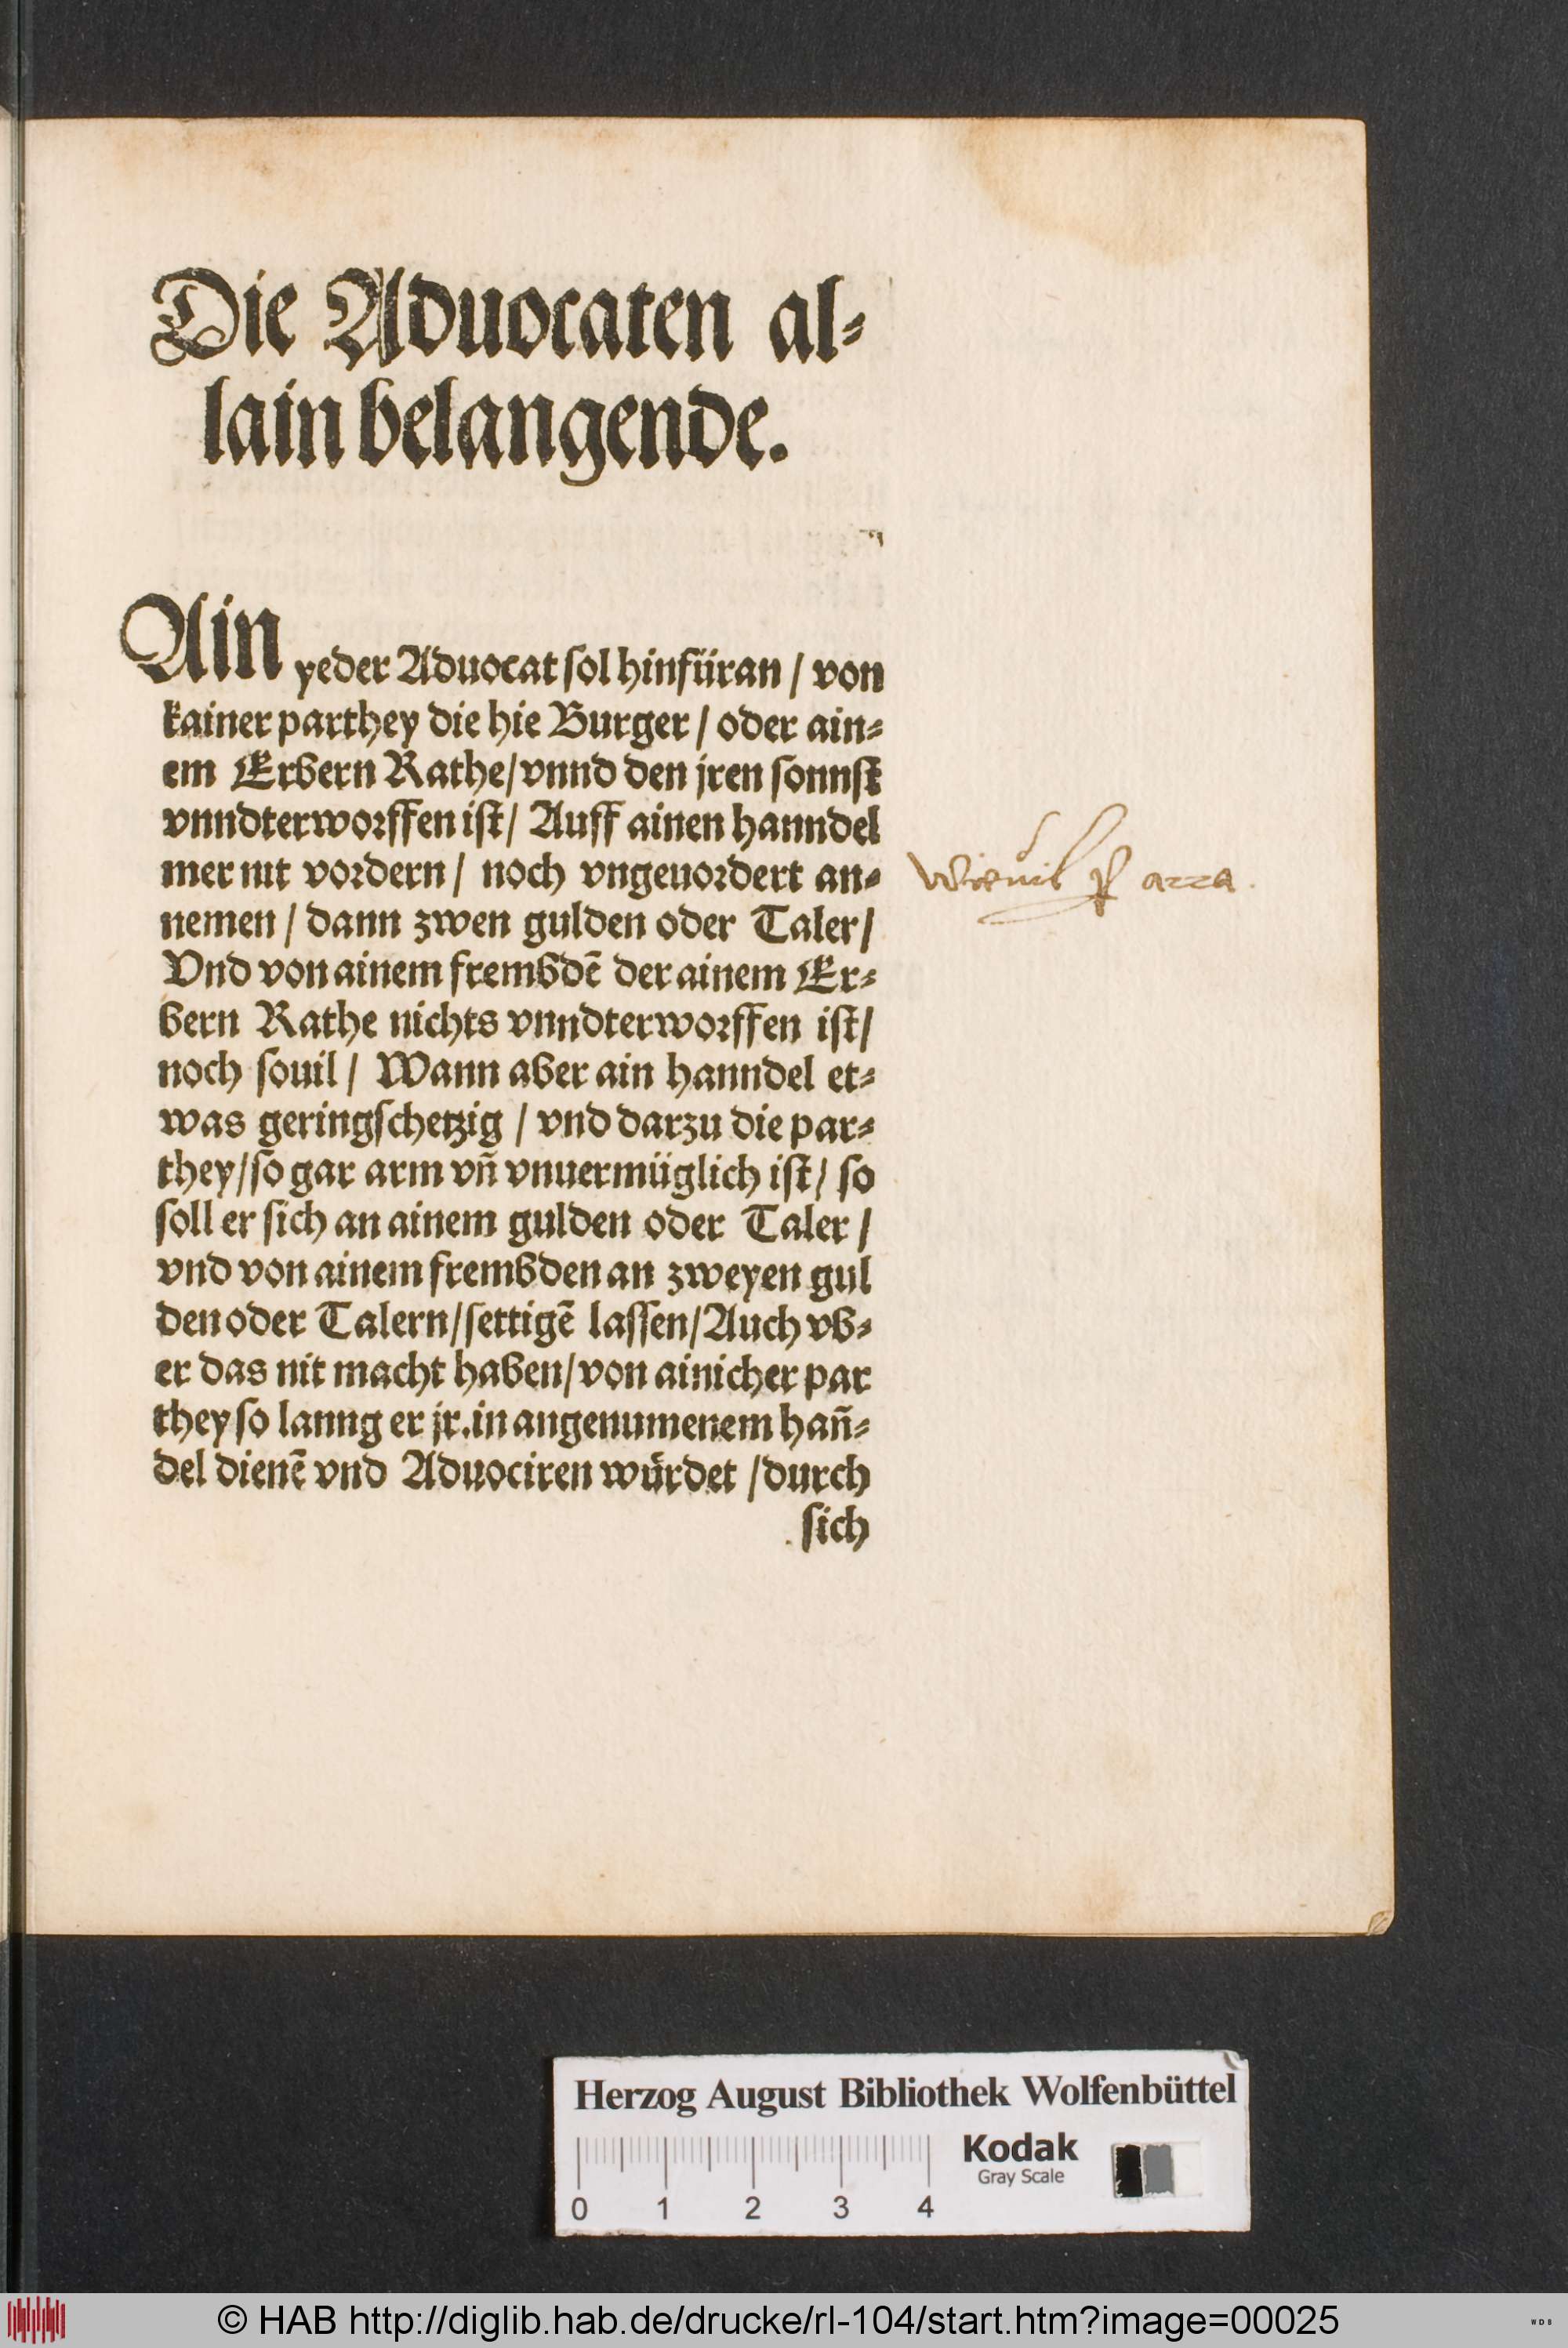 Die Aduocaten al⸗
lain belangende.
Ain yeder Aduocat sol hinfüran / von
kainer parthey die hie Burger / oder ain⸗
em Erbern Rathe/vnnd den jren sonnst
vnndterworffen ist/ Auff ainen hanndel
mer nit vordern / noch vngeuordert an⸗
nemen / dann zwen gulden oder Taler/
Vnd von ainem frembdē der ainem Er⸗
bern Rathe nichts vnndterworffen ist/
noch souil / Wann aber ain hanndel et⸗
was geringschetzig / vnd darzu die par⸗
they/so gar arm vñ vnuermüglich ist/ so
soll er sich an ainem gulden oder Taler /
vnd von ainem frembden an zweyen gul
den oder Talern/settigē lassen/Auch vb⸗
er das nit macht haben/von ainicher par
they so lanng er jr.in angenumenem hañ⸗
del dienē vnd Aduociren würdet /durch
sich
arra.
Herzog August Bibliothek Wolfenbüttel
Kodak
Gray Scale
0 1 2 3 4
© HAB http://diglib.hab.de/drucke/rl-104/start.htm?image=00025
WDB